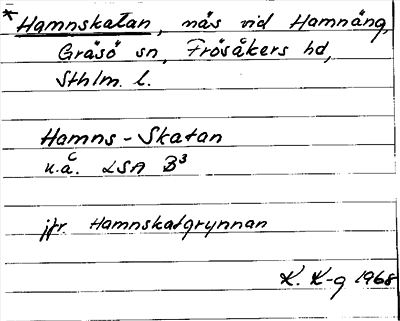 * Hamnskatan, näs vid Hamnäng,
Gräsö sn, Frösåkers hd,
Sthlm. l.
Hamns-Skatan
u.å. LSA B³
jfr. Hamnskatgrynnan
K. K-g 1968